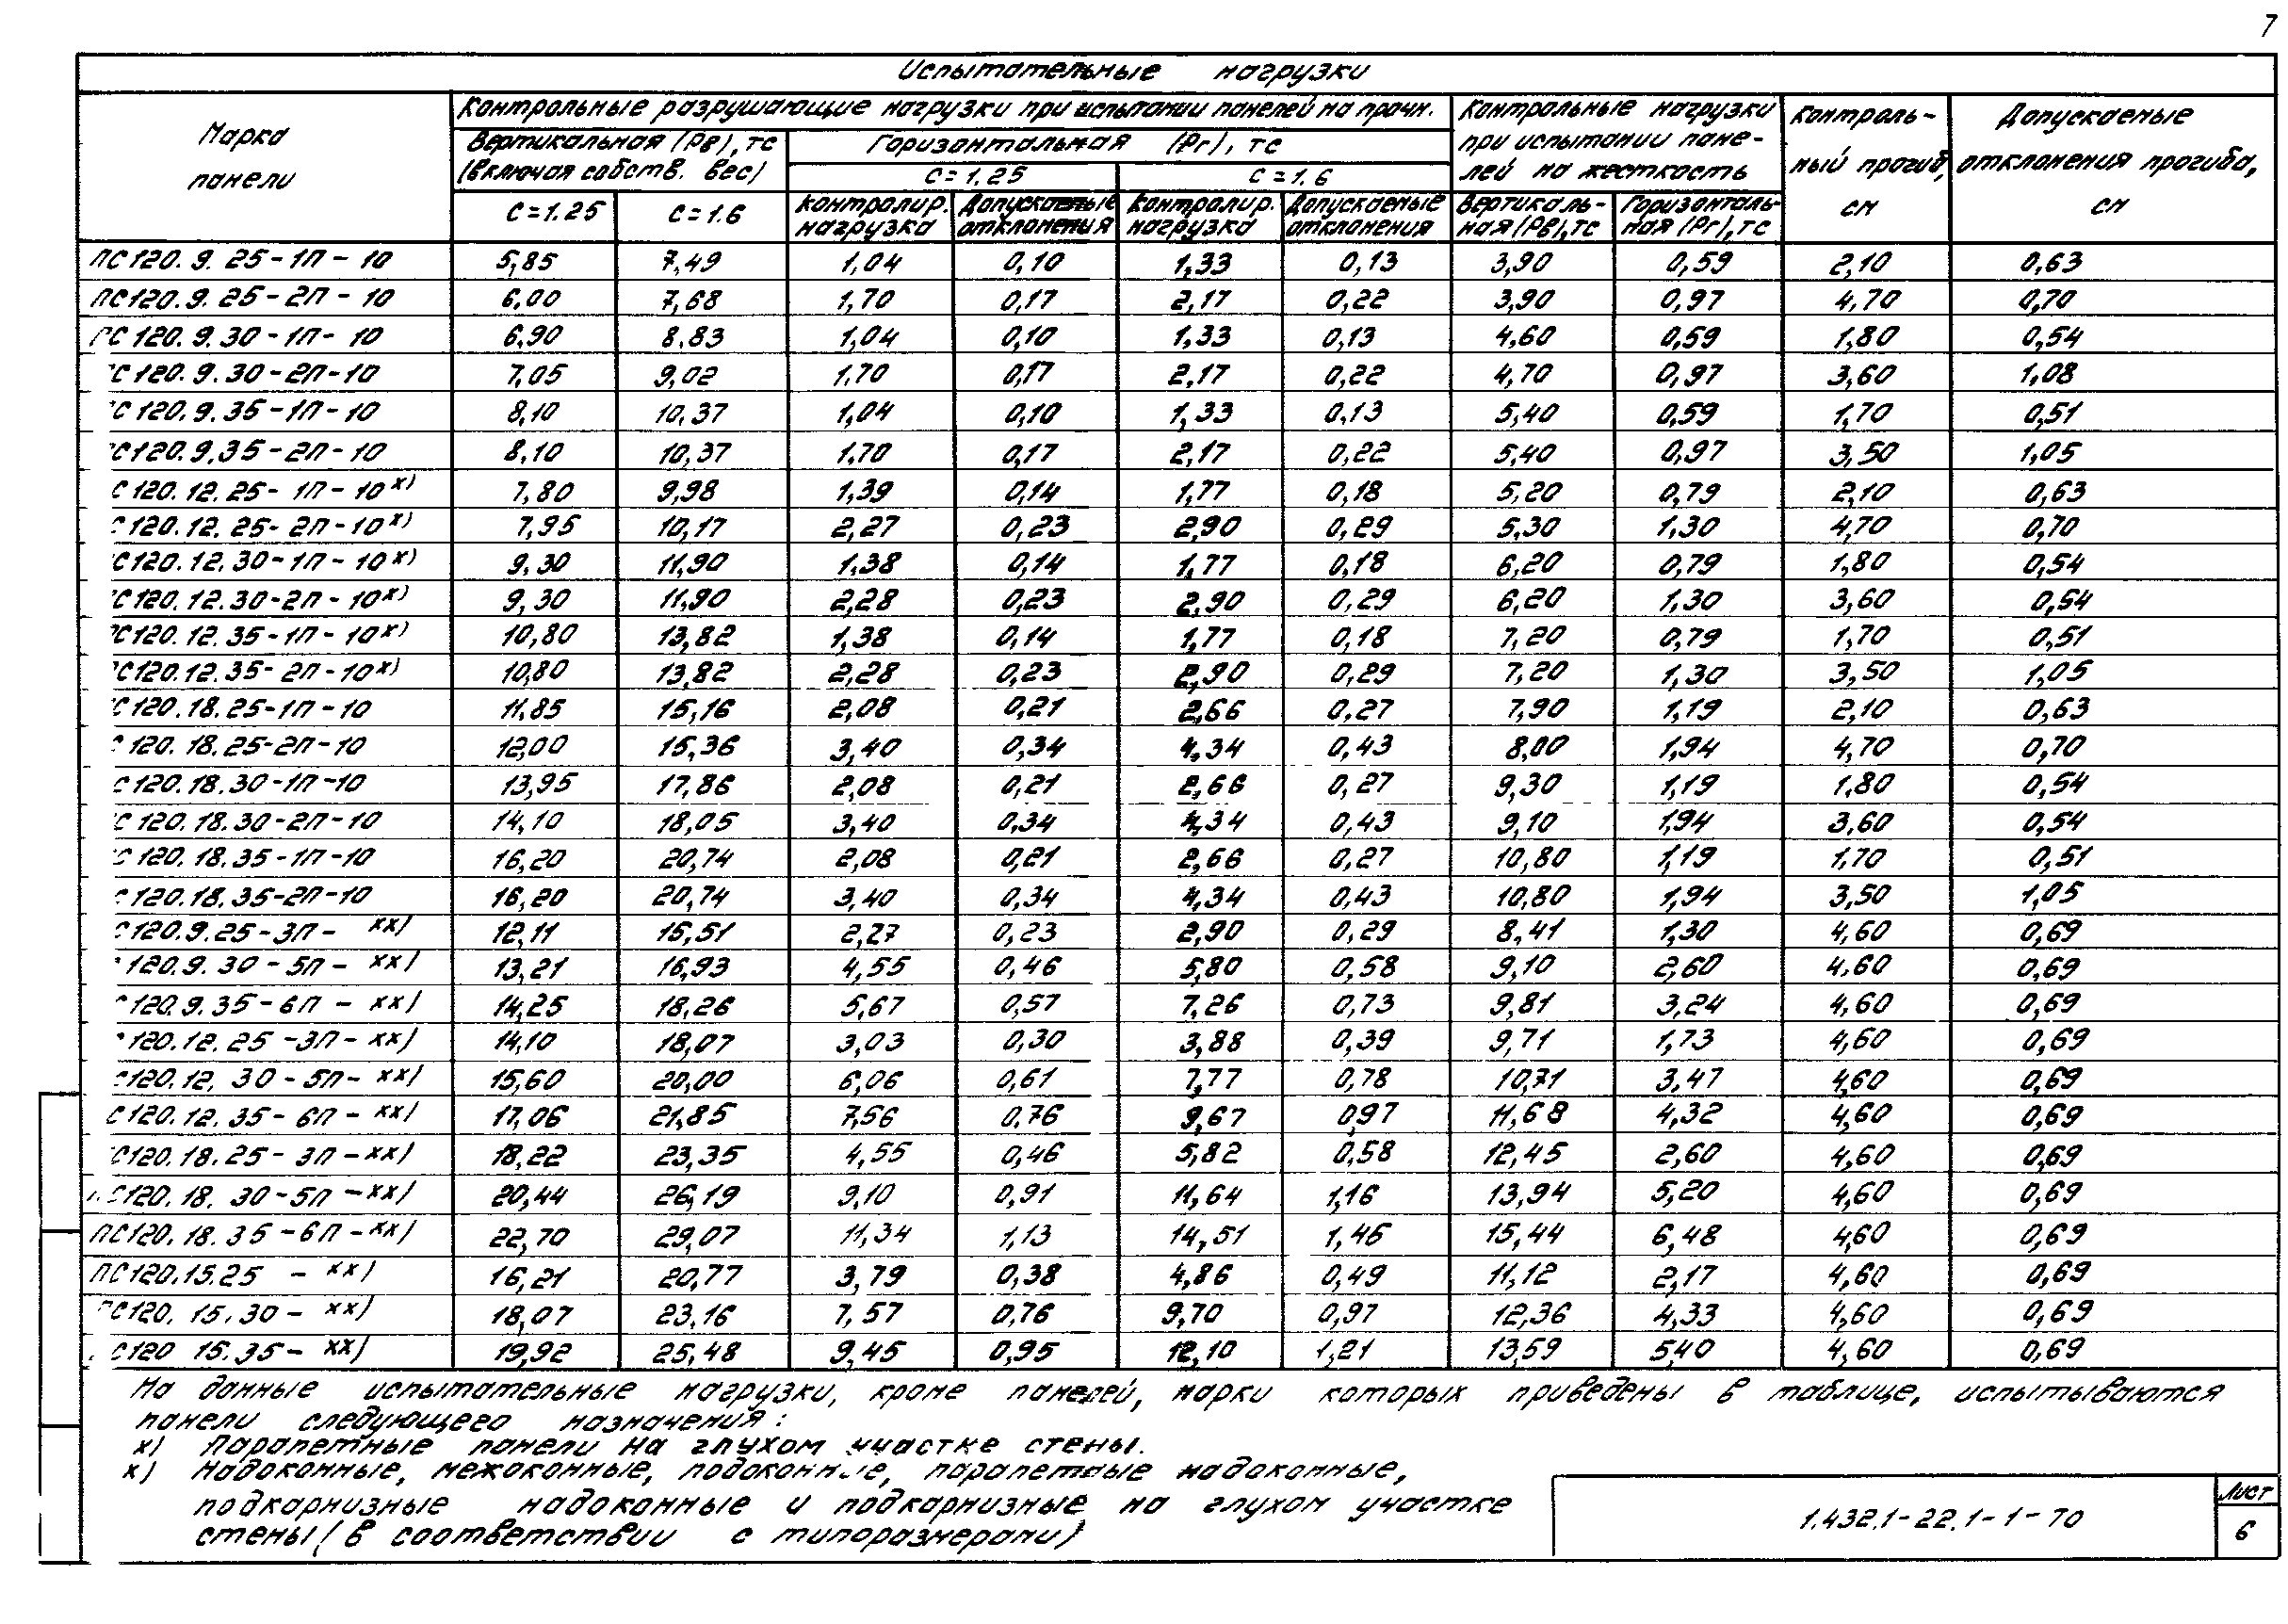 7
Испытательные нагрузки
Марка панели
Контрольные разрушающие нагрузки при испытании панелей на прочн.
Контрольные нагрузки при испытании пане-лей на жесткость
Контроль-ный прогиб, см
Допускаемые отклонения прогиба, см
Вертикальная (Рв), тс (включая собств. вес)
Горизонтальная (Рг), тс
С=1.25 С=1.6
С=1.25 С=1.6
контролир. нагрузка Допускаемые отклонения Контролир. нагрузка Допускаемые отклонения Вертикаль-ная (Рв), тс Горизонталь-ная (Рг), тс
ПС120.9.25-1П-10 5,85 7,49 1,04 0,10 1,33 0,13 3,90 0,59 2,10 0,63
ПС120.9.25-2П-10 6,00 7,68 1,70 0,17 2,17 0,22 3,90 0,97 4,70 0,70
ПС120.9.30-1П-10 6,90 8,83 1,04 0,10 1,33 0,13 4,60 0,59 1,80 0,54
С120.9.30-2П-10 7,05 9,02 1,70 0,17 2,17 0,22 4,70 0,97 3,60 1,08
С120.9.35-1П-10 8,10 10,37 1,04 0,10 1,33 0,13 5,40 0,59 1,70 0,51
С120.9.35-2П-10 8,10 10,37 1,70 0,17 2,17 0,22 5,40 0,97 3,50 1,05
С120.12.25-1П-10х) 7,80 9,98 1,39 0,14 1,77 0,18 5,20 0,79 2,10 0,63
С120.12.25-2П-10х) 7,95 10,17 2,27 0,23 2,90 0,29 5,30 1,30 4,70 0,70
С120.12.30-1П-10х) 9,30 11,90 1,38 0,14 1,77 0,18 6,20 0,79 1,80 0,54
С120.12.30-2П-10х) 9,30 11,90 2,28 0,23 2,90 0,29 6,20 1,30 3,60 0,54
С120.12.35-1П-10х) 10,80 13,82 1,38 0,14 1,77 0,18 7,20 0,79 1,70 0,51
С120.12.35-2П-10х) 10,80 13,82 2,28 0,23 2,90 0,29 7,20 1,30 3,50 1,05
С120.18.25-1П-10 11,85 15,16 2,08 0,21 2,66 0,27 7,90 1,19 2,10 0,63
120.18.25-2П-10 12,00 15,36 3,40 0,34 4,34 0,43 8,00 1,94 4,70 0,70
С120.18.30-1П-10 13,95 17,86 2,08 0,21 2,66 0,27 9,30 1,19 1,80 0,54
С120.18.30-2П-10 14,10 18,05 3,40 0,34 4,34 0,43 9,10 1,94 3,60 0,54
С120.18.35-1П-10 16,20 20,74 2,08 0,21 2,66 0,27 10,80 1,19 1,70 0,51
120.18.35-2П-10 16,20 20,74 3,40 0,34 4,34 0,43 10,80 1,94 3,50 1,05
С120.9.25-3П- хх) 12,11 15,51 2,27 0,23 2,90 0,29 8,41 1,30 4,60 0,69
120.9.30-5П-хх) 13,21 16,93 4,55 0,46 5,80 0,58 9,10 2,60 4,60 0,69
120.9.35-6П-хх) 14,25 18,26 5,67 0,57 7,26 0,73 9,81 3,24 4,60 0,69
120.12.25-3П-хх) 14,10 18,07 3,03 0,30 3,88 0,39 9,71 1,73 4,60 0,69
120.12.30-5П-хх) 15,60 20,00 6,06 0,61 7,77 0,78 10,71 3,47 4,60 0,69
С120.12.35-6П-хх) 17,06 21,85 7,56 0,76 9,67 0,97 11,68 4,32 4,60 0,69
С120.18.25-3П-хх) 18,22 23,35 4,55 0,46 5,82 0,58 12,45 2,60 4,60 0,69
С120.18.30-5П-хх) 20,44 26,19 9,10 0,91 11,64 1,16 13,94 5,20 4,60 0,69
ПС120.18.35-6П-хх) 22,70 29,07 11,34 1,13 14,51 1,46 15,44 6,48 4,60 0,69
ПС120.15.25 - хх) 16,21 20,77 3,79 0,38 4,86 0,49 11,12 2,17 4,60 0,69
ПС120.15.30- хх) 18,07 23,16 7,57 0,76 9,70 0,97 12,36 4,33 4,60 0,69
С120 15.35- хх) 19,92 25,48 9,45 0,95 12,10 1,21 13,59 5,40 4,60 0,69
На данные испытательные нагрузки, кроме панелей, марки которых приведены в таблице, испытываются
панели следующего назначения:
х) Парапетные панели на глухом участке стены.
х) Надоконные, межоконные, подоконные, парапетные надоконные,
подкарнизные надоконные и подкарнизные на глухом участке
стены (в соответствии с типоразмерами)
1.432.1-22.1-1-70
Лист
6